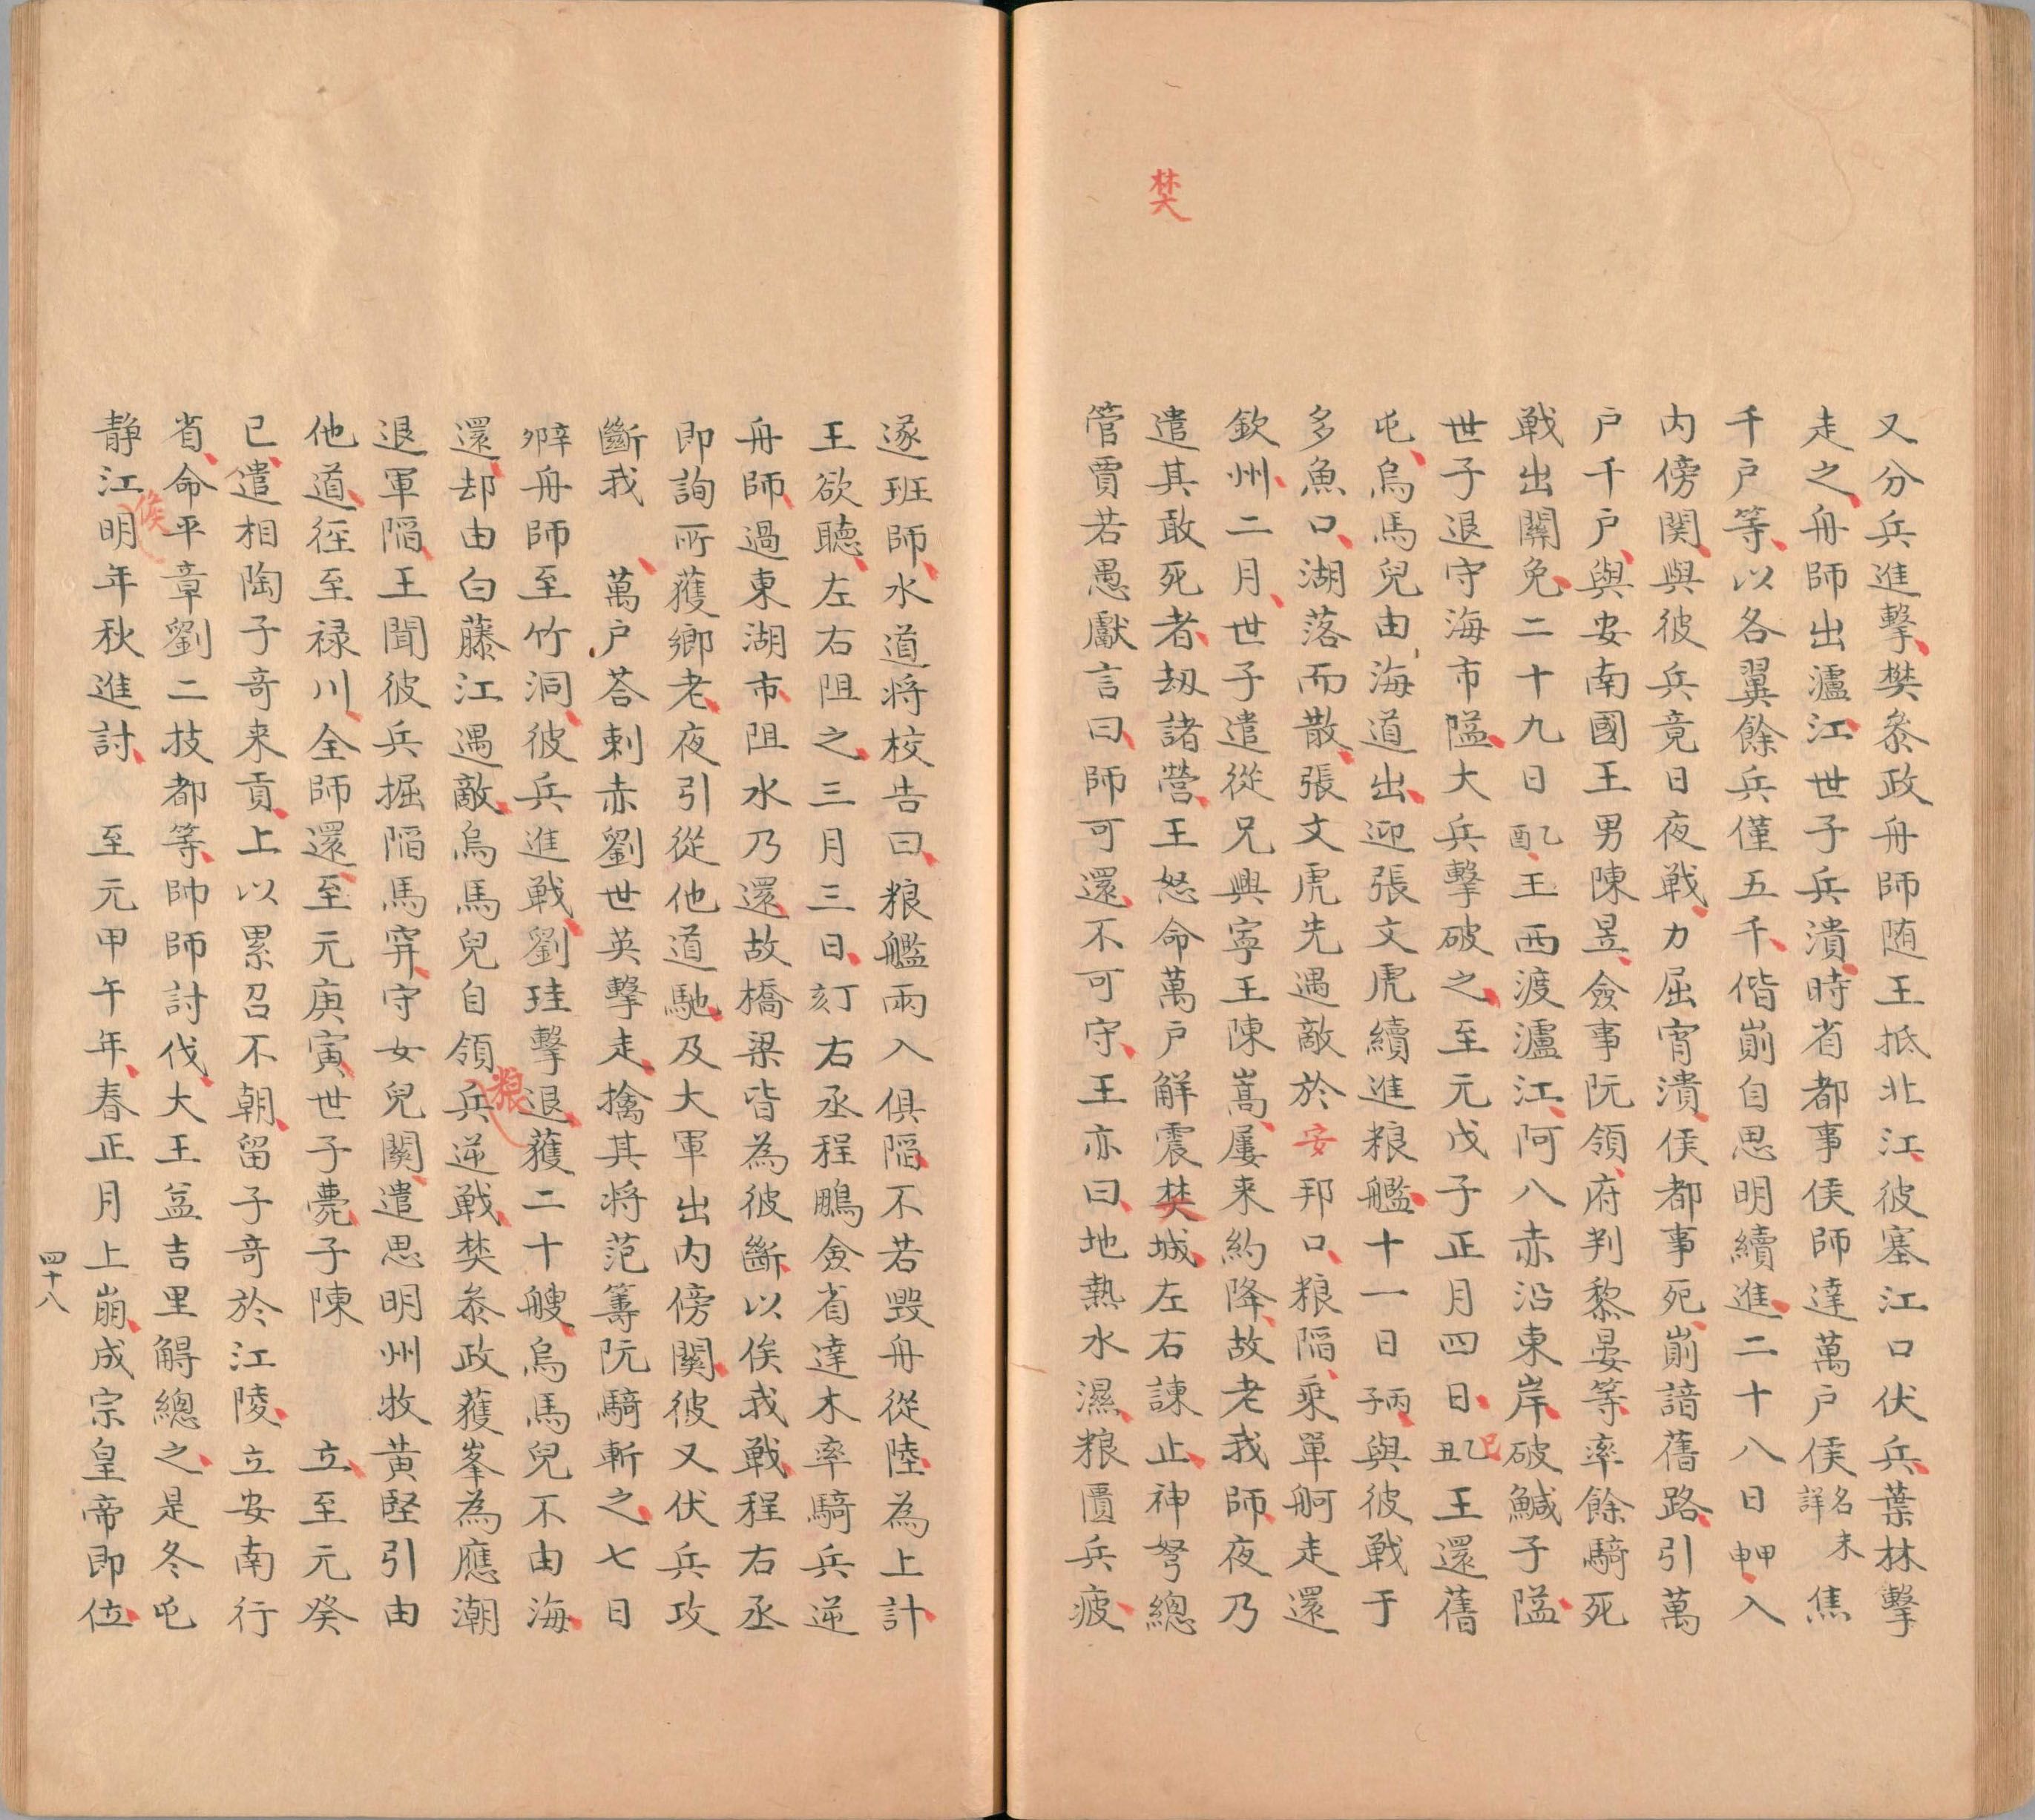 樊
又分兵進擊樊叅政舟師随王抵北江彼塞江口伏兵葉林擊
走之舟師出瀘江世子兵潰時省都事侯師達萬戶侯名未詳焦
千戶等以各翼餘兵僅五千偕崱自思明續進二十八日甲申入
內傍関與彼兵竟日夜戰力屈宵潰侯都事死崱諳舊路引萬
戶千戶與安南國王男陳昱僉事阮領府判黎晏等率餘騎死
戰出關免二十九日乙酉王西渡瀘江阿八赤沿東岸破鹹子隘
世子退守海市隘大兵擊破之至元戊子正月四日乙丑巳王還舊
屯烏馬兒由海道出迎張文虎續進粮艦十一日丙子與彼戰于
多魚口湖落而散張文虎先遇敵於安邦口粮陷乘單舸走還
欽州二月世子遣從兄興寧王陳嵩屢来約降故老我師夜乃
遣其敢死者刼諸營王怒命萬戶解震焚城左右諫止神弩總
管賈若愚獻言曰師可還不可守王亦曰地熱水濕粮匱兵疲
遂班師水道將校告曰粮艦兩入俱陷不若毀舟從陸為上計
王欲聽左右阻之三月三日刻丁右丞程鵬僉省達木率騎兵逆
舟師過東湖市阻水乃還故橋梁皆為彼斷以俟我戰程右丞
即詢所獲鄉老夜引從他道馳及大軍出內傍關彼又伏兵攻
斷我 萬戶荅剌赤劉世英擊走擒其將范籌阮騎斬之七日
辛卯舟師至竹洞彼兵進戰劉珪擊退獲二十艘烏馬兒不由海
粮
還却由白藤江遇敵烏馬兒自領兵逆戰樊叅政獲峯為應潮
退軍陷王聞彼兵掘陷馬穽守女兒關遣思明州牧黃堅引由
他道徑至禄川全師還至元庚寅世子薨子陳 立至元癸
巳遣相陶子奇来貢上以累召不朝留子奇於江陵立安南行
省命平章劉二拔都等帥師討伐大王益吉里䚟總之是冬屯
俟
静江明年秋進討 至元甲午年春正月上崩成宗皇帝即位
四十八